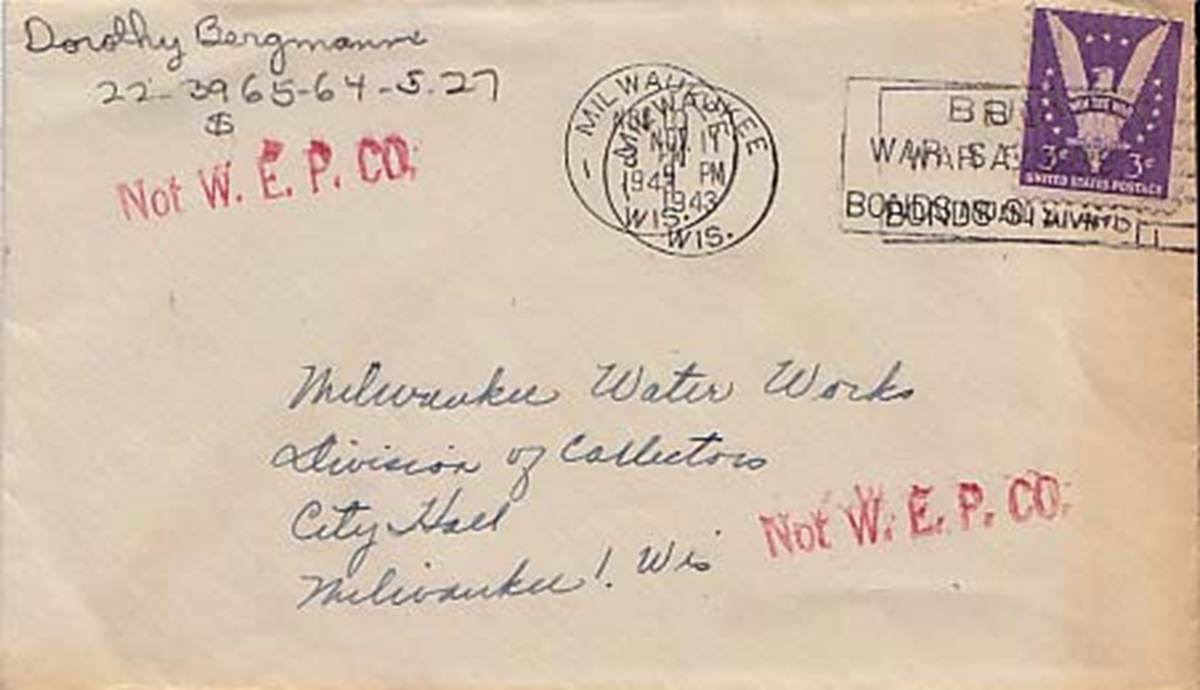 Dorothy Bergmann
22-3965-64-5.27
$
Not W. E. P. CO.
MILWAUKEE
NOV 17
PM
1943
WIS.
BUY
WAR SA
BONDS AND
3¢ 3¢
UNITED STATES POSTAGE
Milwaukee Water Works
Division of Collectors
City Hall
Milwaukee 1. Wis
Not W. E. P. CO.